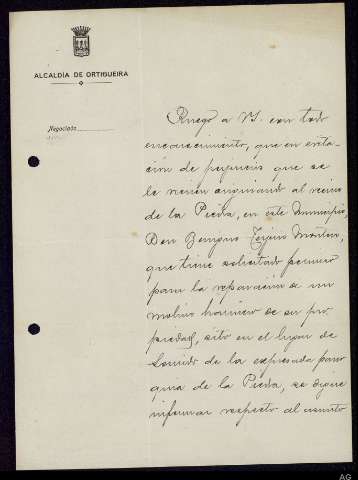 ALCALDÍA DE ORTIGUEIRA
Negociado
Ruego a VS. con todo
encarecimiento, que en evita-
ción de perjuicios que se
le vienen originando al vecino
de la Piedra, en este Municipio,
Don Benigno Teijeiro Martin,
que tiene solicitado permiso
para la reparación de un
molino harinero de su pro
piedad, sito en el lugar de
de la expresada parro
quia de la Piedra, se digne
informar respecto al asunto
AG